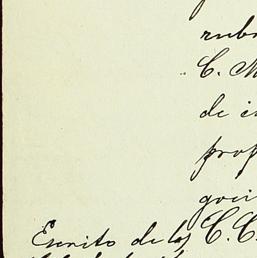 rubr
C. M
de in
prop
goci
Escrito de los C.C.